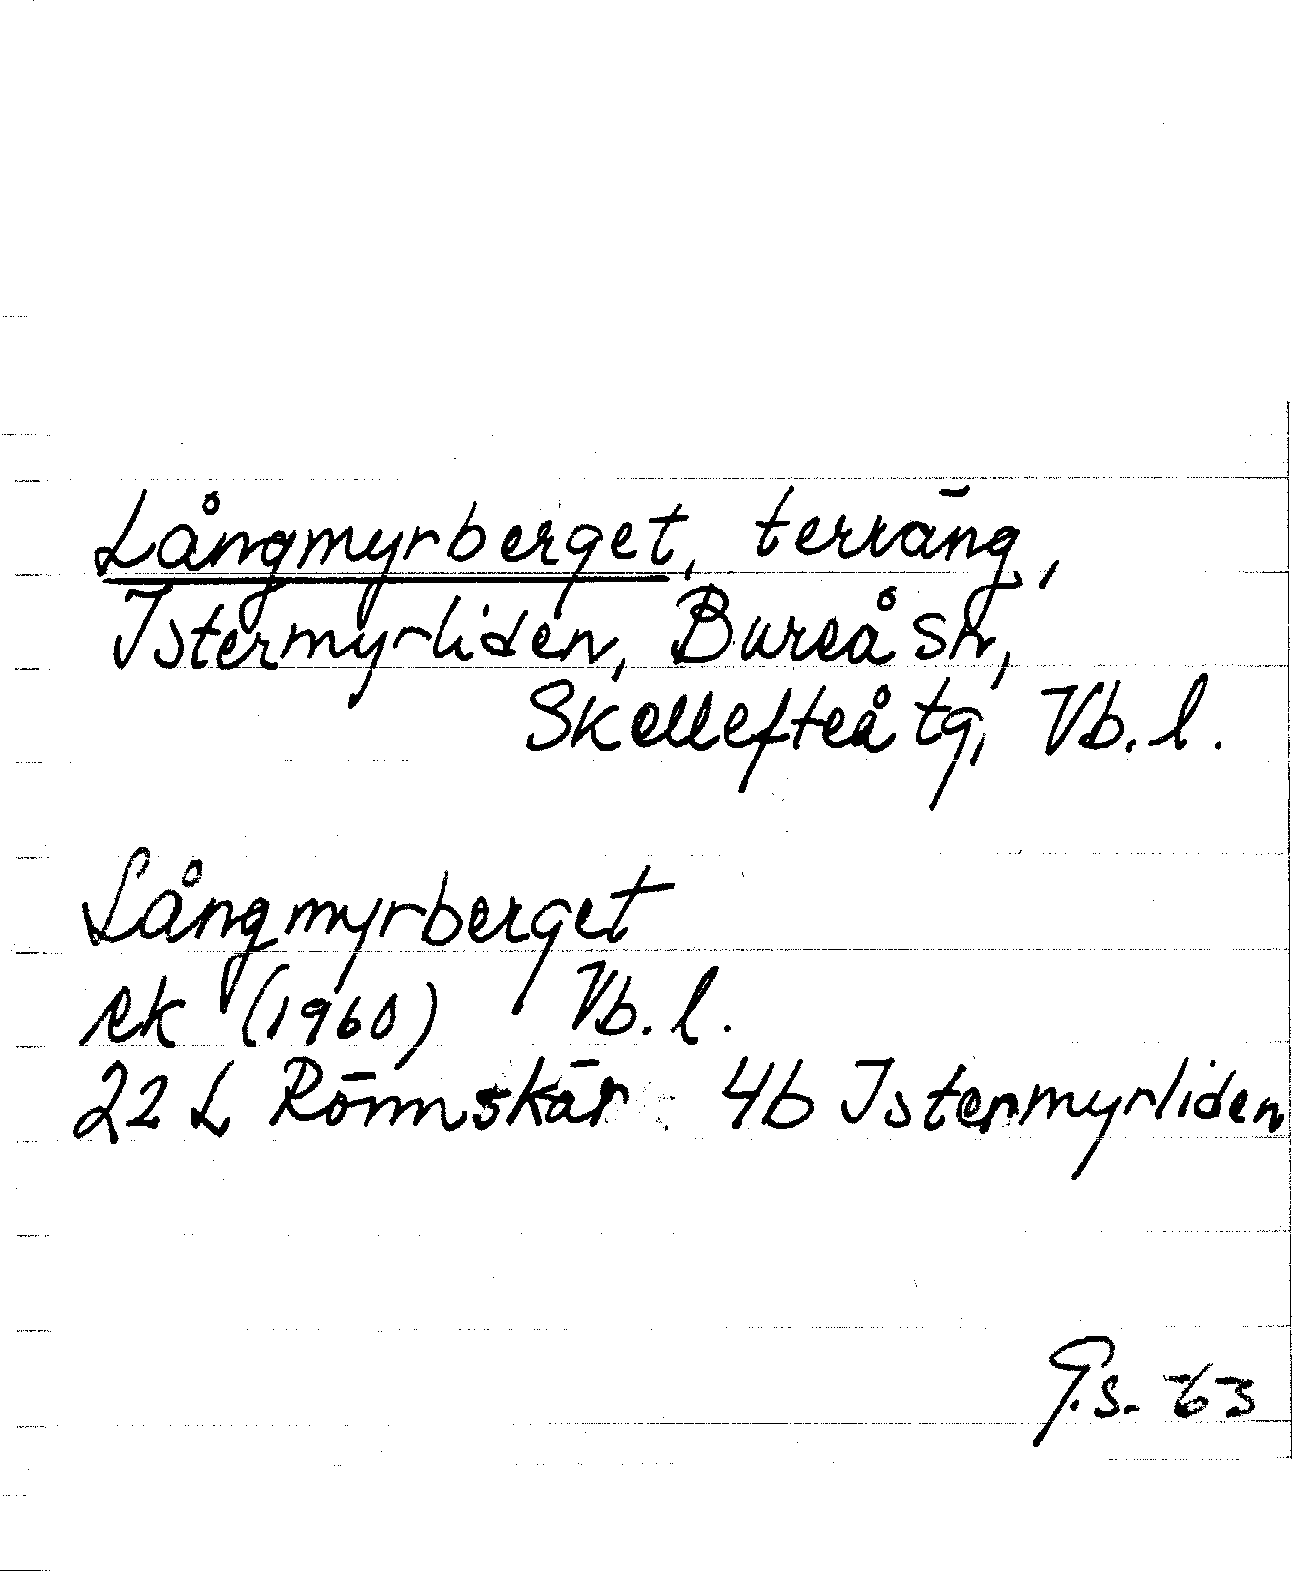 Långmyrberget, terräng,
Istermyrliden, Bureå sn,
Skellefteå tg, Vb. l.
Långmyrberget
rk (1960) Vb. l.
22 L Rönnskär 4b Istermyrliden
G.S. -63